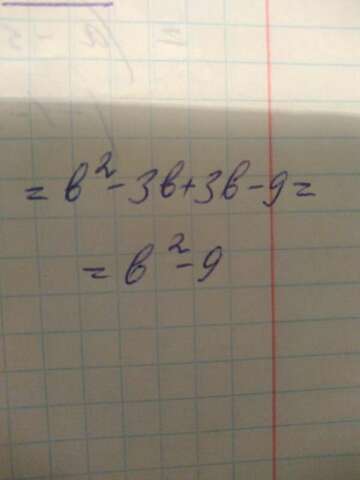 = b² - 3b + 3b - 9 =
= b² - 9